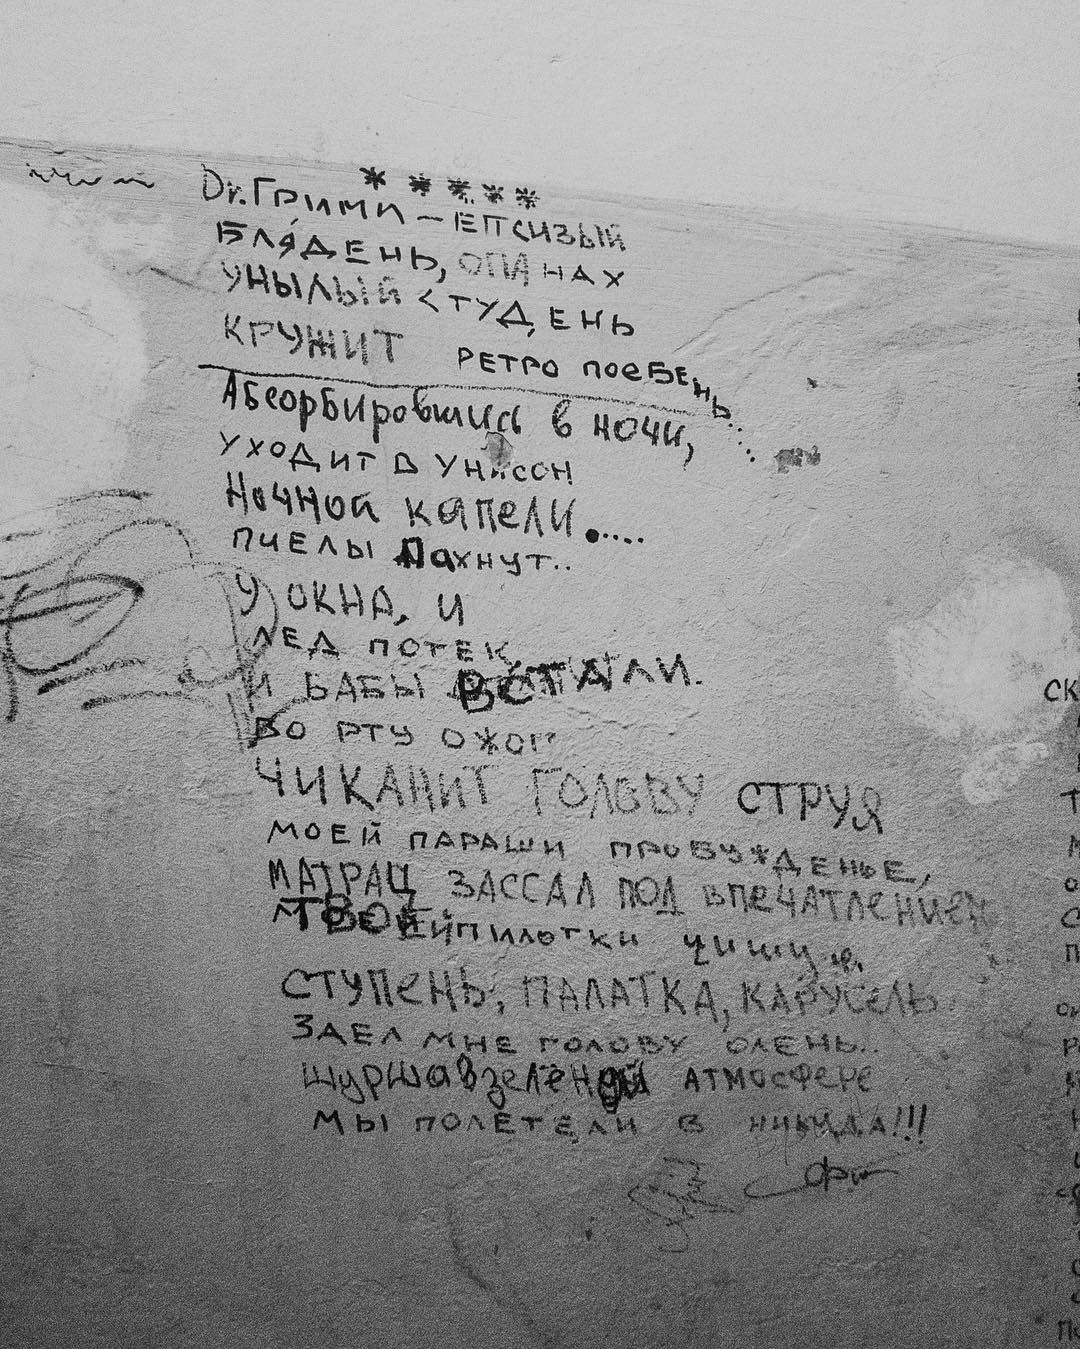 *****
Dr.Грими – ЕПСИЗЫЙ
БЛЯДЕНЬ, ОПА НАХ
УНЫЛЫЙ СТУДЕНЬ
КРУЖИТ РЕТРО ПОЕБЕНЬ...
Абсорбировшись в ночи,
УХОДИТ В УНИСОН
Ночной капели.....
ПЧЕЛЫ ПаХНУТ..
У ОКНА, И
ЛЕД ПОТЕК,
И БАБЫ ВСТАЛИ.
ВО РТУ ОЖОГ
ЧИКАНИТ ГОЛОВУ СТРУЯ
МОЕЙ ПАРАШИ ПРОБУЖДЕНЬЕ,
МАТРАЦ ЗАССАЛ ПОД ВПЕЧАТЛЕНИЕМ
ТВОЕЙ ПИЛОТКИ
СТУПЕНЬ, ПАЛАТКА, КАРУСЕЛЬ
ЗАЕЛ МНЕ ГОЛОВУ ОЛЕНЬ..
шурша в зелёной АТМОСФЕРЕ
МЫ ПОЛЕТЕЛИ В НИКУДА!!!
СК